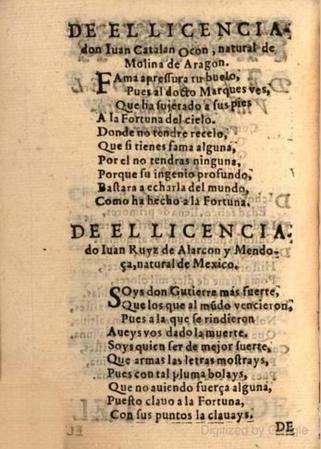 DE EL LICENCIA-
don Iuan Catalan Ocon, natural de
Molina de Aragon.
FAma apressura tu buelo,
Pues al docto Marques ves,
Que ha sujetado a sus pies
A la Fortuna del cielo.
Donde no tendre recelo,
Que si tienes fama alguna,
Por el no tendras ninguna,
Porque su ingenio profundo,
Bastara a echarla del mundo,
Como ha hecho a la Fortuna.
DE EL LICENCIA-
do Iuan Ruyz de Alarcon y Mendo-
ça, natural de Mexico.
SOys don Gutierre más fuerte,
Que los que al mũdo vencieron,
Pues a la que se rindieron
Aueys vos dado la muerte.
Soys quien ser de mejor suerte,
Que armas las letras mostrays,
Pues con tal pluma bolays,
Que no auiendo fuerça alguna,
Puesto clauo a la Fortuna,
Con sus puntos la clauays.
DE
Digitized by Google